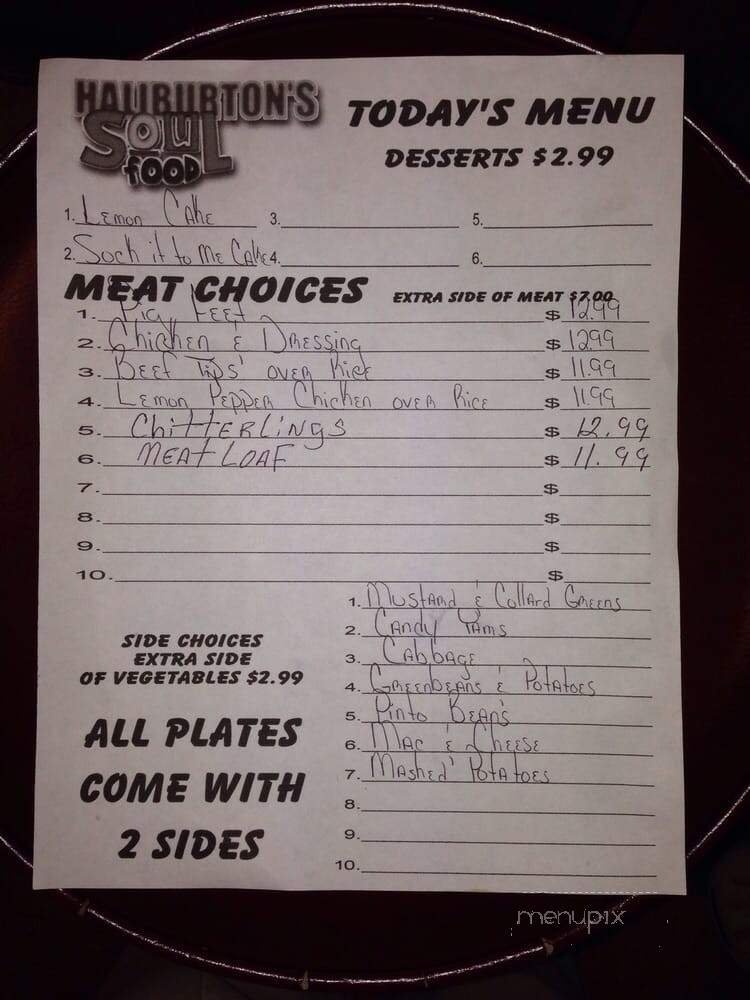 HALIBURTON'S
SOUL
FOOD
TODAY'S MENU
DESSERTS $2.99
1. Lemon Cake 3. 5.
2. Sock it to Me Cake 4. 6.
MEAT CHOICES EXTRA SIDE OF MEAT $7.00
1. Pig Feet $ 12.99
2. Chicken & Dressing $ 12.99
3. Beef Tips' over Rice $ 11.99
4. Lemon Pepper Chicken over Rice $ 11.99
5. Chitterlings $ 12.99
6. Meat Loaf $ 11.99
7. $
8. $
9. $
10. $
SIDE CHOICES
EXTRA SIDE
OF VEGETABLES $2.99
ALL PLATES
COME WITH
2 SIDES
1. Mustard & Collard Greens
2. Candy Yams
3. Cabbage
4. Greenbeans & Potatoes
5. Pinto Beans
6. Mac & Cheese
7. Mashed Potatoes
8.
9.
10.
menupix